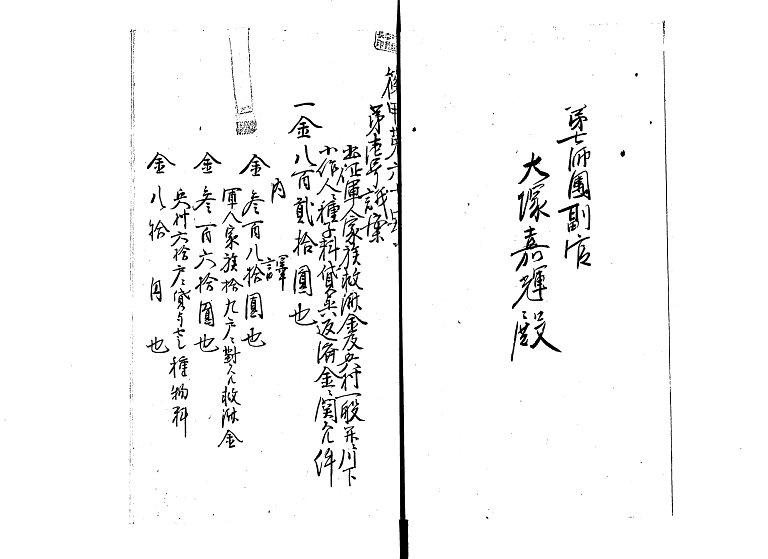 第七師團副官
大塚嘉輝殿
篠甲第六十号
第壱号議案
出征軍人家族救淋金及兵村一般並川下
小作人種子料貸与返済金ニ関スル件
一金八百貳拾圓也
内譯
金叁百八拾圓也
軍人家族拾九戸ニ對スル救淋金
金叁百六拾圓也
兵村六拾戸ニ貸与セシ種物料
金八拾円也